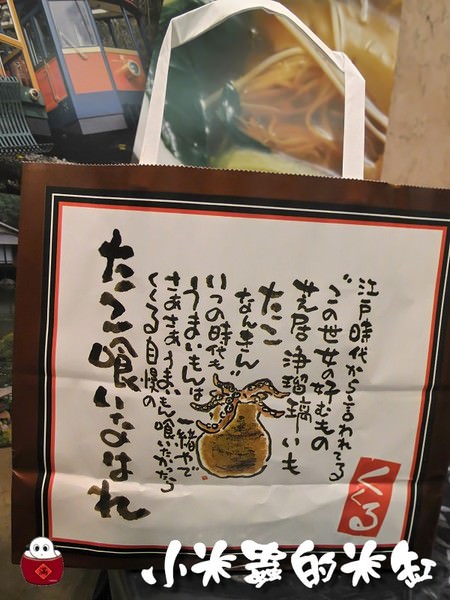 江戸時代から言われてる
“この世女の好むもの
芝居 浄瑠璃 いも
たこ
なんきん”
いつの時代も
うまいもんは
一緒やで
さあさあうまいもん喰いたかったら
くくる自慢の
たこ喰いなはれ
くくる
小米蟲的米缸